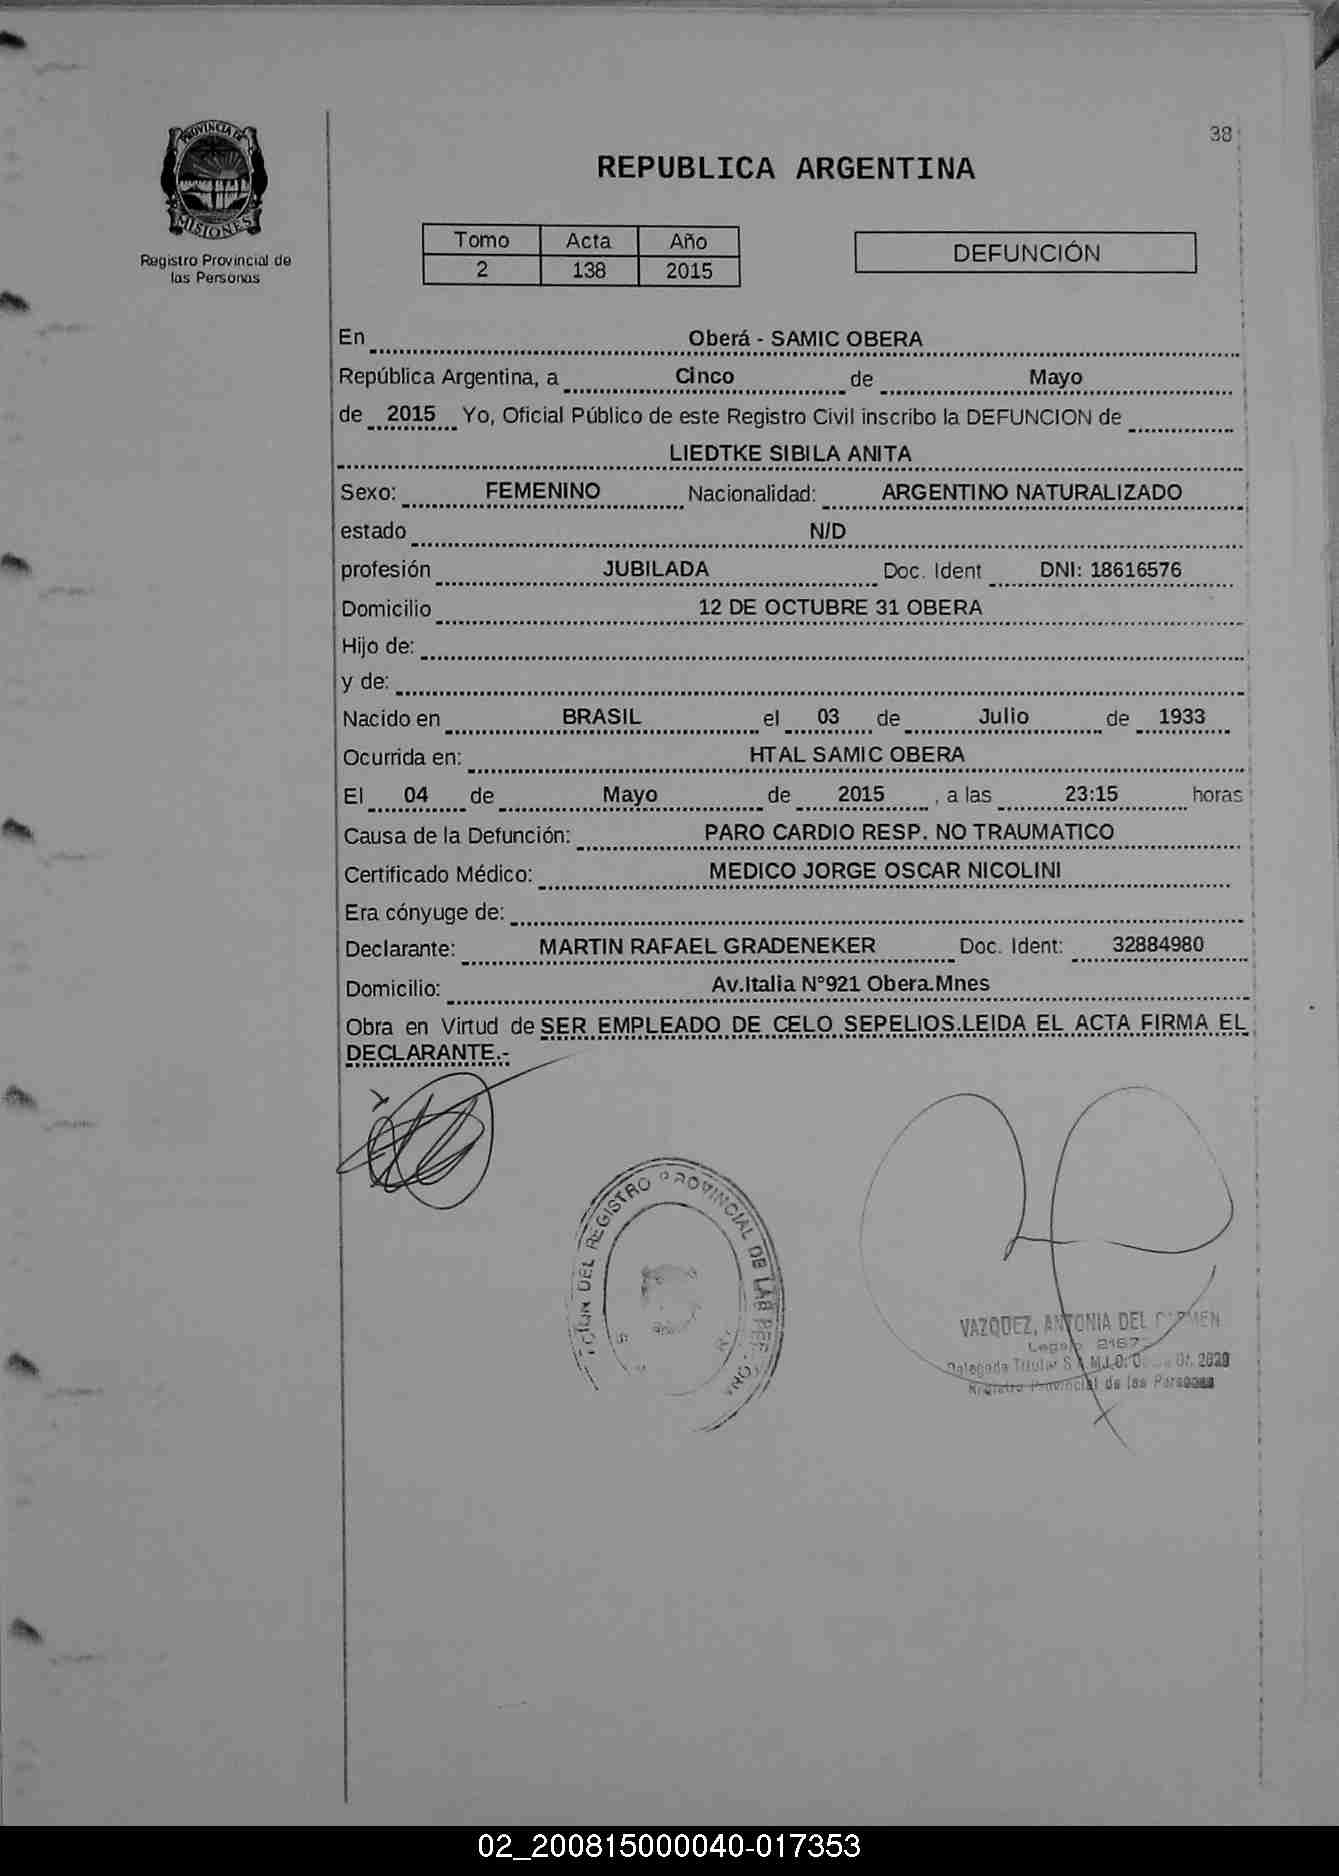 38
PROVINCIA DE
MISIONES
Registro Provincial de
las Personas
REPUBLICA ARGENTINA
Tomo Acta Año
2 138 2015
DEFUNCIÓN
En Oberá - SAMIC OBERA
República Argentina, a Cinco de Mayo
de 2015 Yo, Oficial Público de este Registro Civil inscribo la DEFUNCION de
LIEDTKE SIBILA ANITA
Sexo: FEMENINO Nacionalidad: ARGENTINO NATURALIZADO
estado N/D
profesión JUBILADA Doc. Ident DNI: 18616576
Domicilio 12 DE OCTUBRE 31 OBERA
Hijo de:
y de:
Nacido en BRASIL el 03 de Julio de 1933
Ocurrida en: HTAL SAMIC OBERA
El 04 de Mayo de 2015 , a las 23:15 horas
Causa de la Defunción: PARO CARDIO RESP. NO TRAUMATICO
Certificado Médico: MEDICO JORGE OSCAR NICOLINI
Era cónyuge de:
Declarante: MARTIN RAFAEL GRADENEKER Doc. Ident: 32884980
Domicilio: Av.Italia N°921 Obera.Mnes
Obra en Virtud de SER EMPLEADO DE CELO SEPELIOS.LEIDA EL ACTA FIRMA EL
DECLARANTE.-
DEL REGISTRO PROVINCIAL DE LAS
VAZQUEZ, ANTONIA DEL
Legajo
Delegada Titular
Registro Provincial de las Personas
02_200815000040-017353